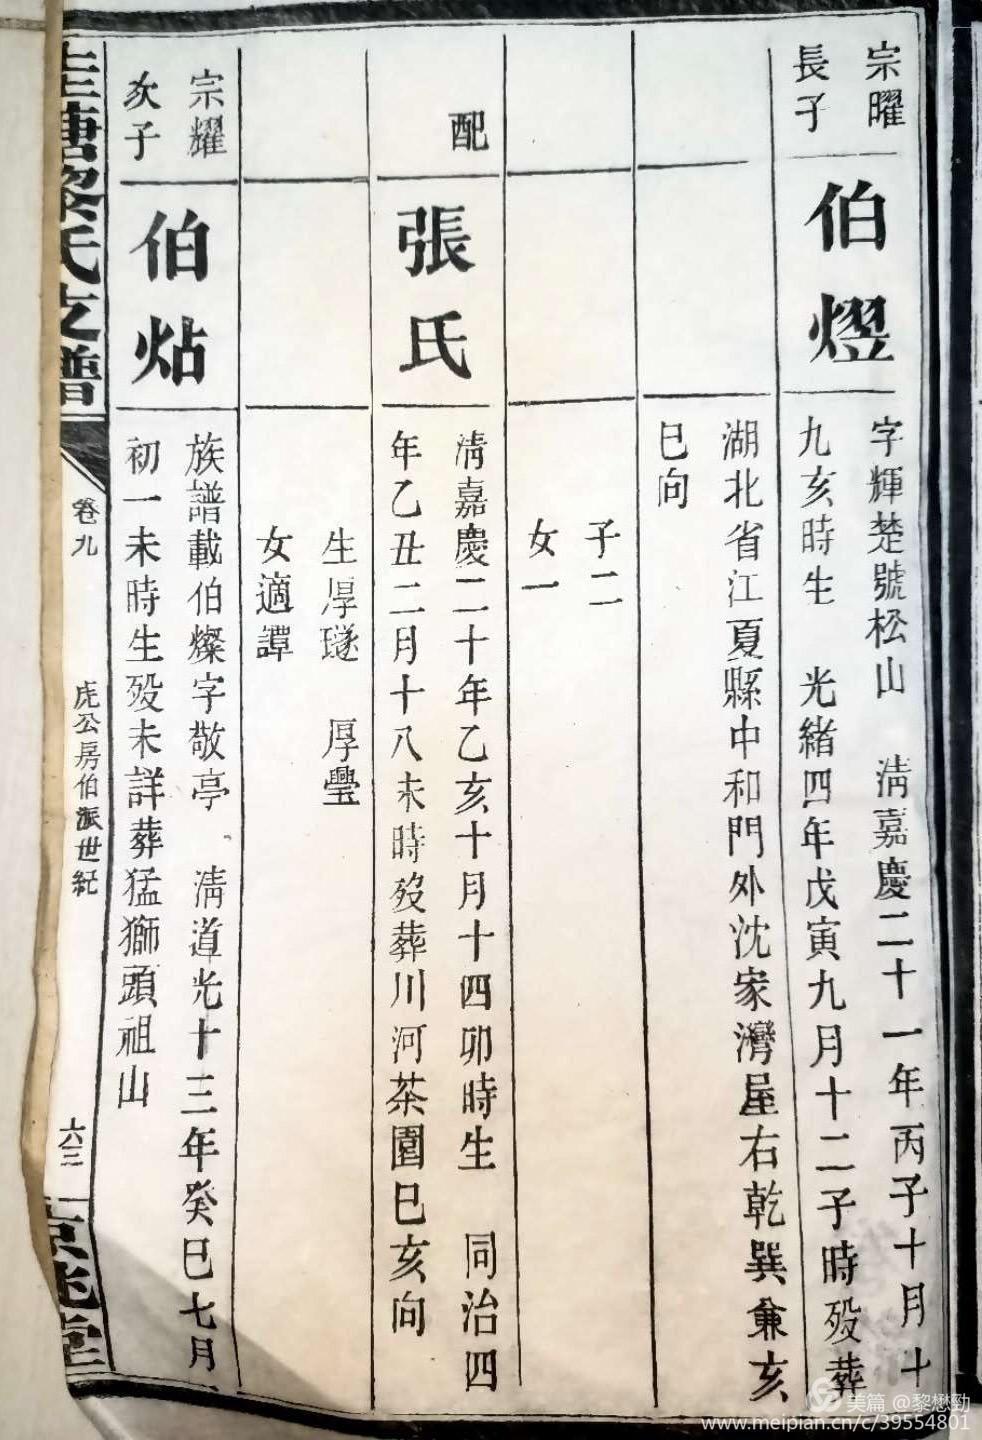 宗曜
長子
伯熤
字輝楚號松山　清嘉慶二十一年丙子十月十
九亥時生　光緒四年戊寅九月十二子時歿葬
湖北省江夏縣中和門外沈家灣屋右乾巽兼亥
巳向
子二
女一
配
張氏
清嘉慶二十年乙亥十月十四卯時生　同治四
年乙丑二月十八未時歿葬川河茶園巳亥向
生厚璲　厚璺
女適譚
宗耀
次子
伯炶
族譜載伯燦字敬亭　清道光十三年癸巳七月
初一未時生歿未詳葬猛獅頭祖山
塘黎氏支譜
卷九
虎公房伯派世紀
六三
京兆堂
美篇 @黎懋勁
www.meipian.cn/c/39554801